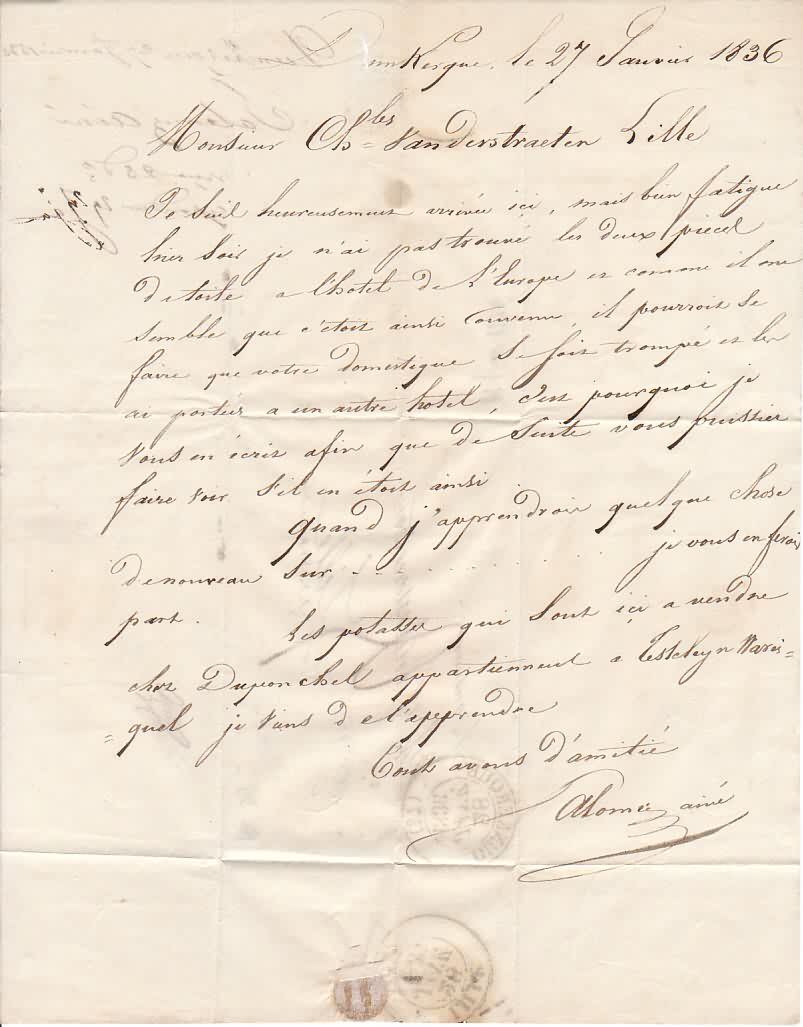 Dunkerque, le 27 Janvier 1836
Monsieur Ch les Vanderstraeten Lille
Je suis heureusement arrivée ici, mais bien fatigue
hier soir je n'ai pas trouvé les deux pièces
de toile a l'hotel de L'Europe et comme il me
semble que c'étoit ainsi convenu, il pourroit se
faire que votre domestique se soit trompé et les
ai portées a un autre hotel, c'est pourquoi je
vous en écris afin que de suite vous puissiez
faire voir s'il en étoit ainsi
quand j'apprendrois quelque chose
de nouveau sur . . . . . . . . . je vous en ferois
part.
Les potasses qui sont ici a vendre
chez Duponchel appartiennent a Testeleyn Wares=
=quel je viens de l'apprendre
Tout avous d'amitié
ainé
11